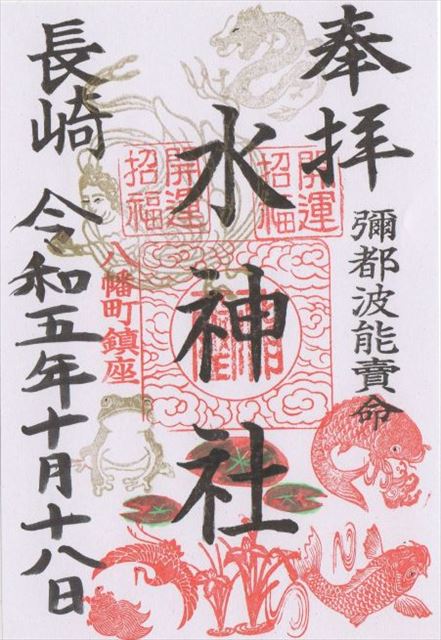 奉拝
彌都波能賣命
開運
招福
水神社
開運
招福
長崎
八幡町鎮座
令和五年十月十八日